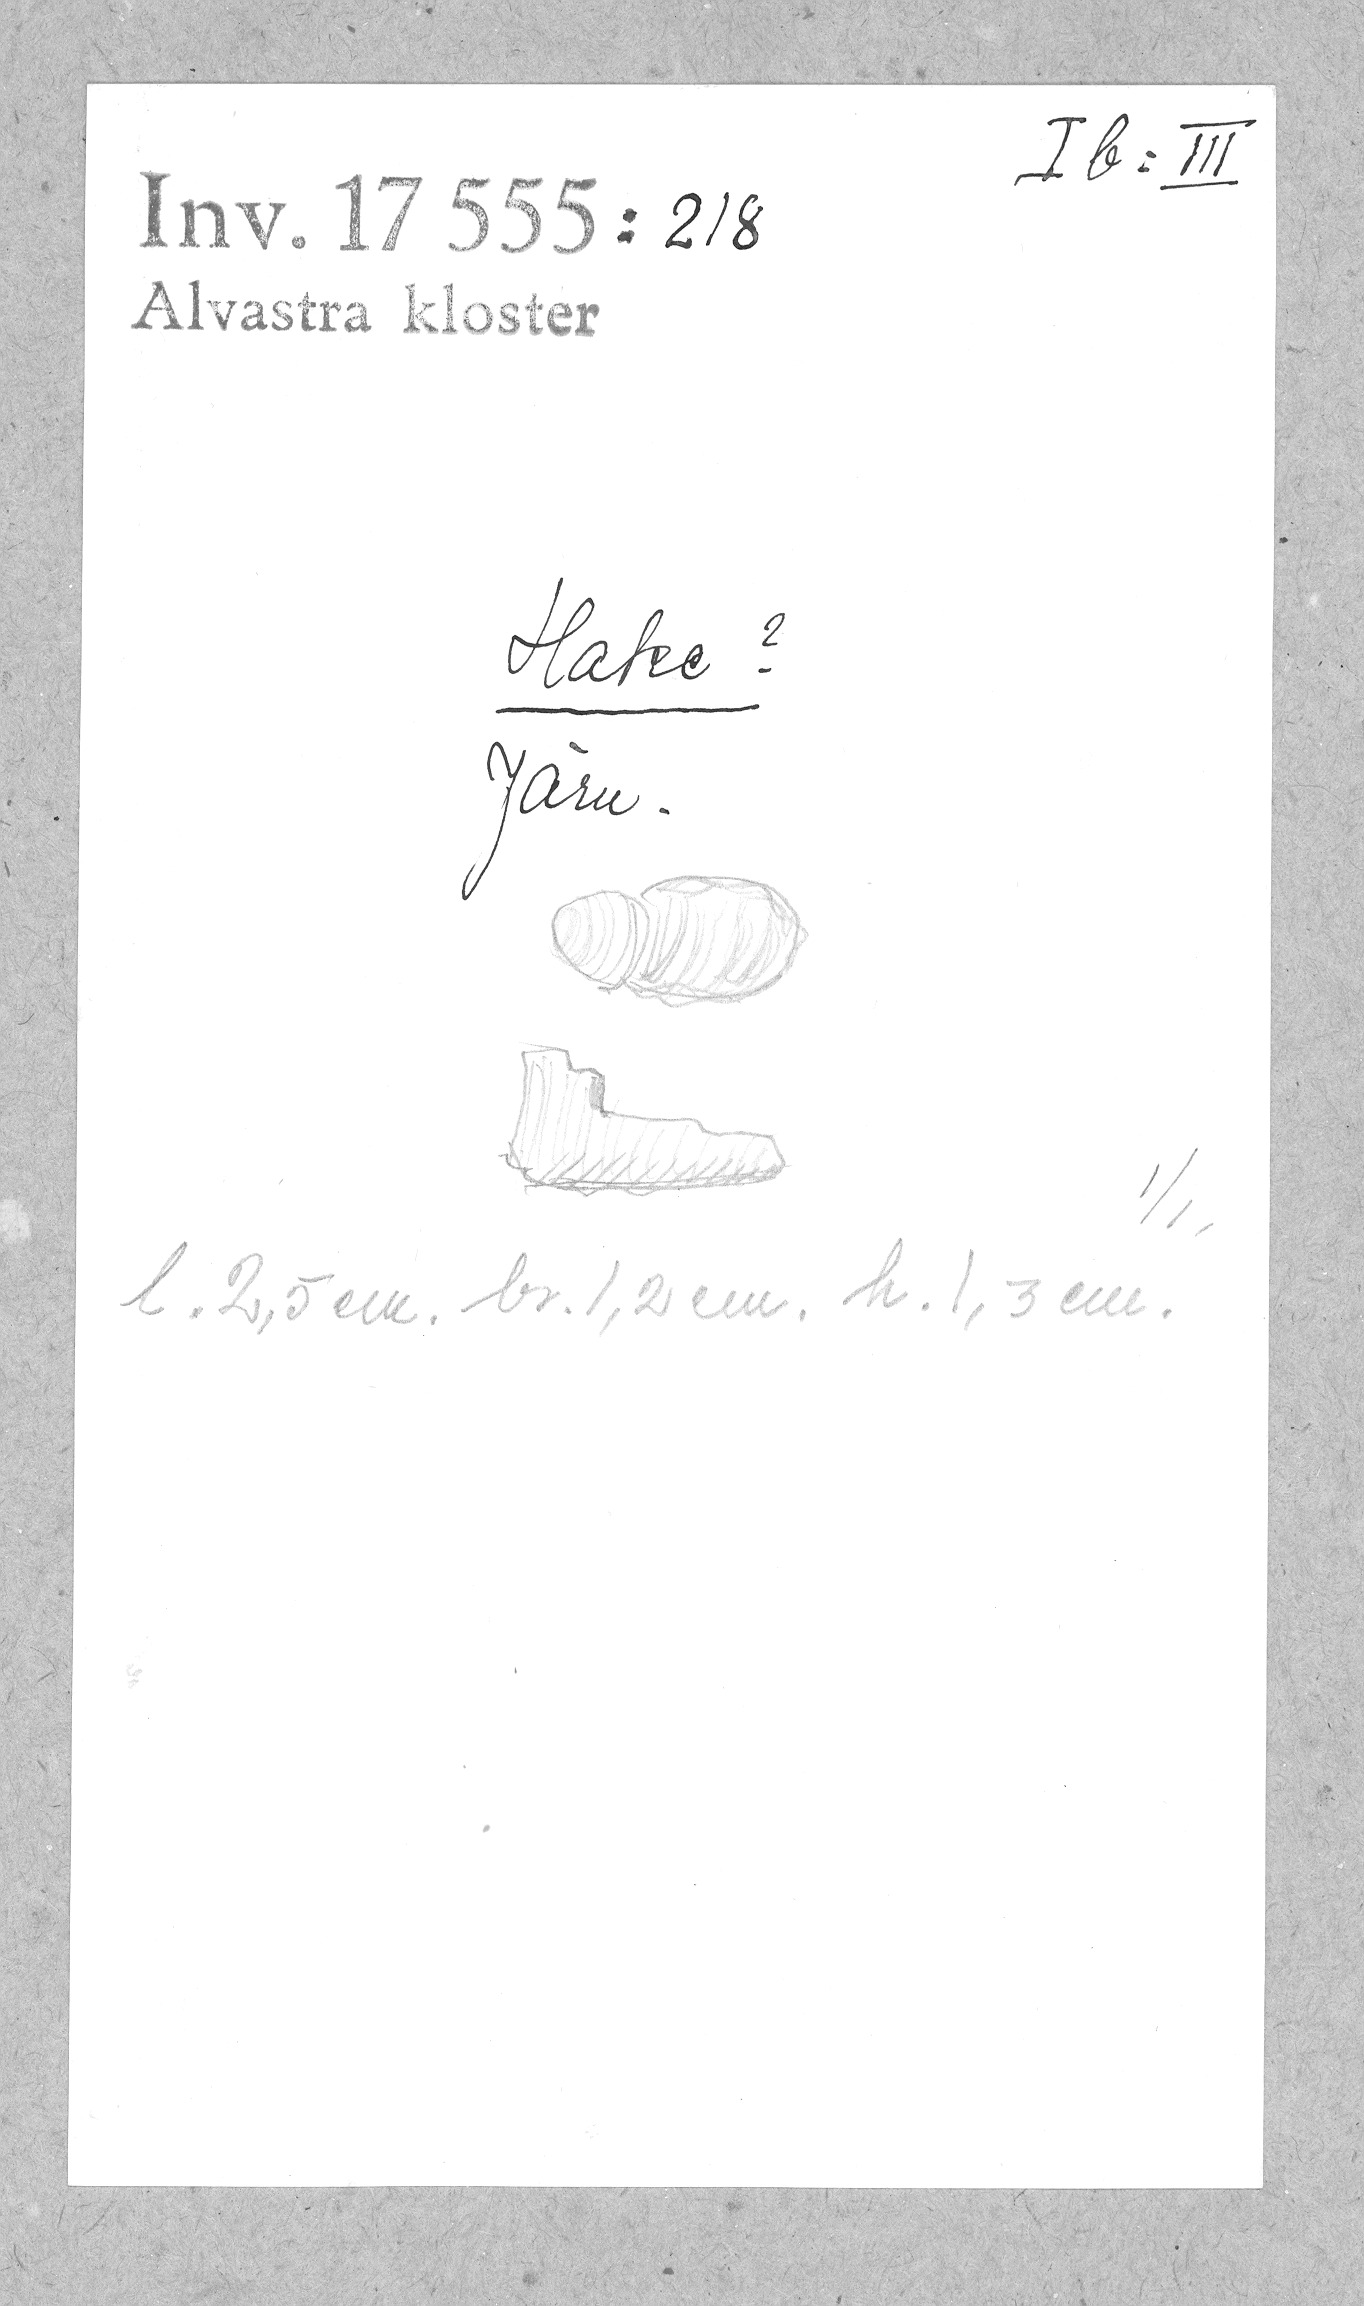 I b: III
Inv. 17 555: 218
Alvastra kloster
Hake ?
Järn.
1/1,
l. 2,5 cm. br. 1,2 cm. h. 1,3 cm.